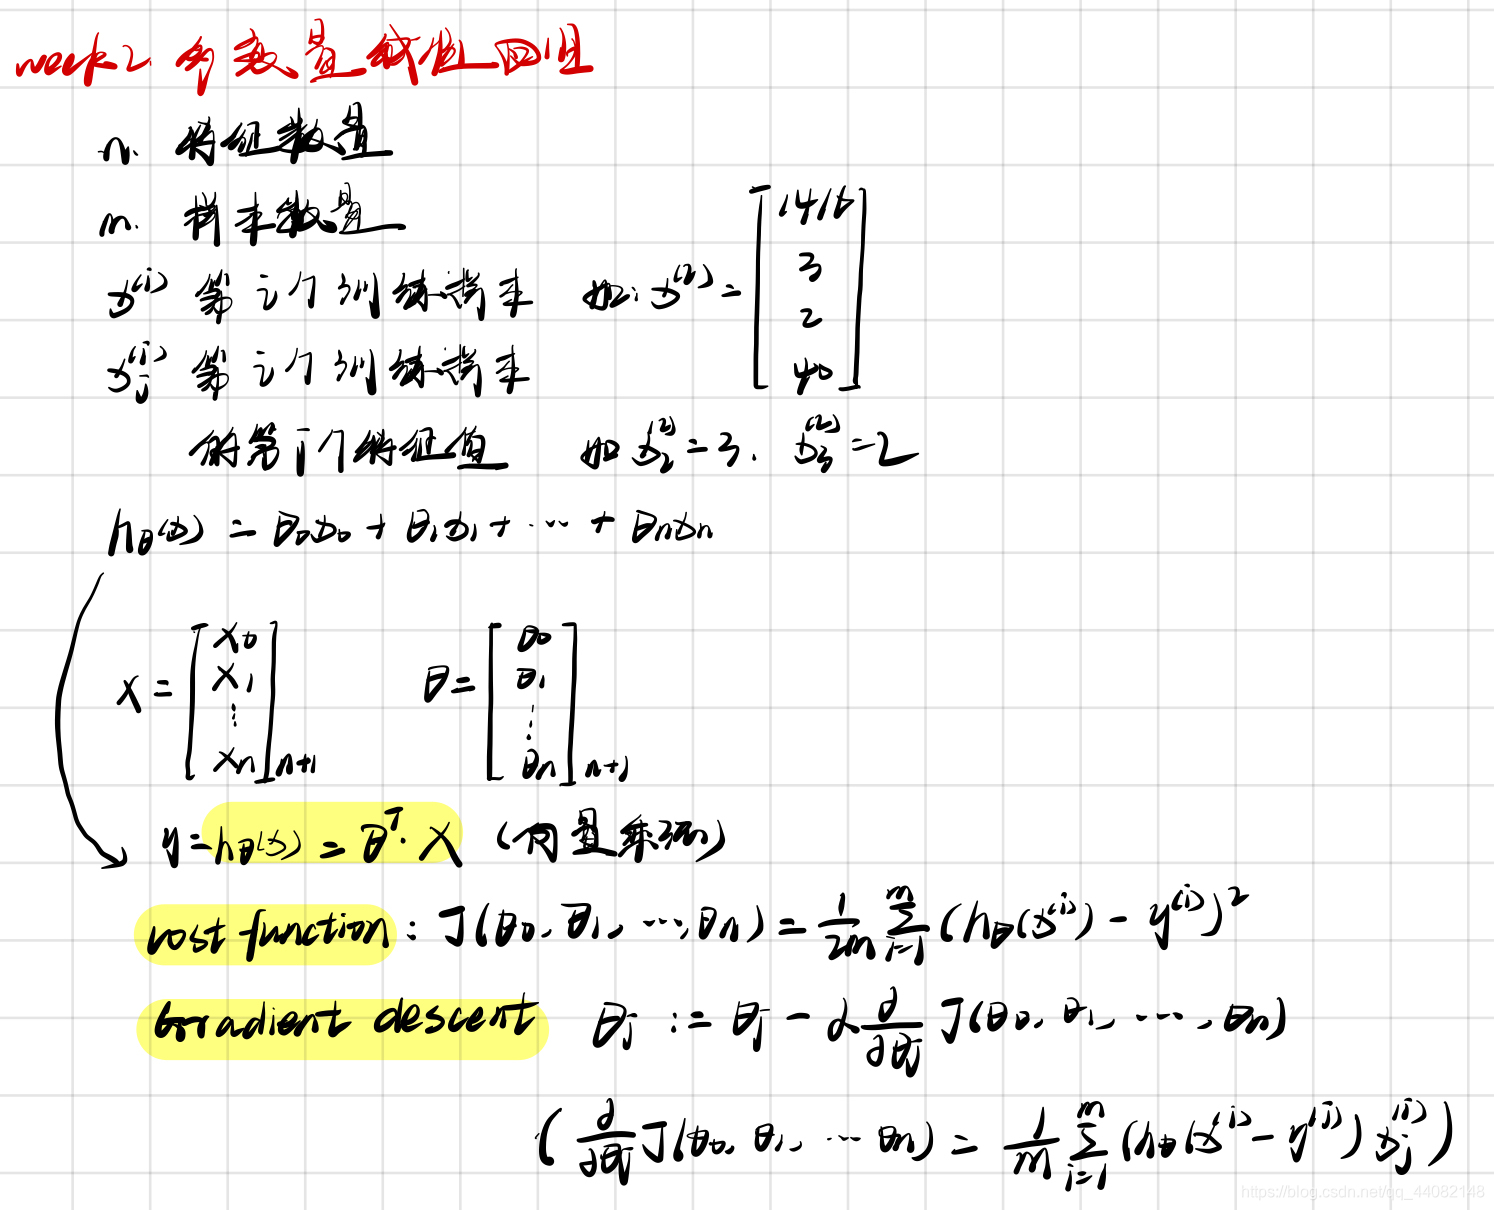 week2 多变量线性回归
n. 特征数量
m. 样本数量
x^(i) 第i个训练样本 如: x^(2) = [1416 3 2 40]
x_j^(i) 第i个训练样本
的第j个特征值 如 x_2^(2) = 3. x_3^(2) = 2
h_θ(x) = θ_0x_0 + θ_1x_1 + ··· + θ_nx_n
X = [x_0 x_1 ⋮ x_n]_n+1 θ = [θ_0 θ_1 ⋮ θ_n]_n+1
y = h_θ(x) = θ^T · X (向量乘法)
cost function: J(θ_0, θ_1, ···, θ_n) = 1/2m Σ_{i=1}^m (h_θ(x^(i)) - y^(i))^2
Gradient descent θ_j := θ_j - α ∂/∂θ_j J(θ_0, θ_1, ···, θ_n)
( ∂/∂θ_j J(θ_0, θ_1, ··· θ_n) = 1/m Σ_{i=1}^m (h_θ(x^(i) - y^(i)) x_j^(i) )
https://blog.csdn.net/qq_44082148